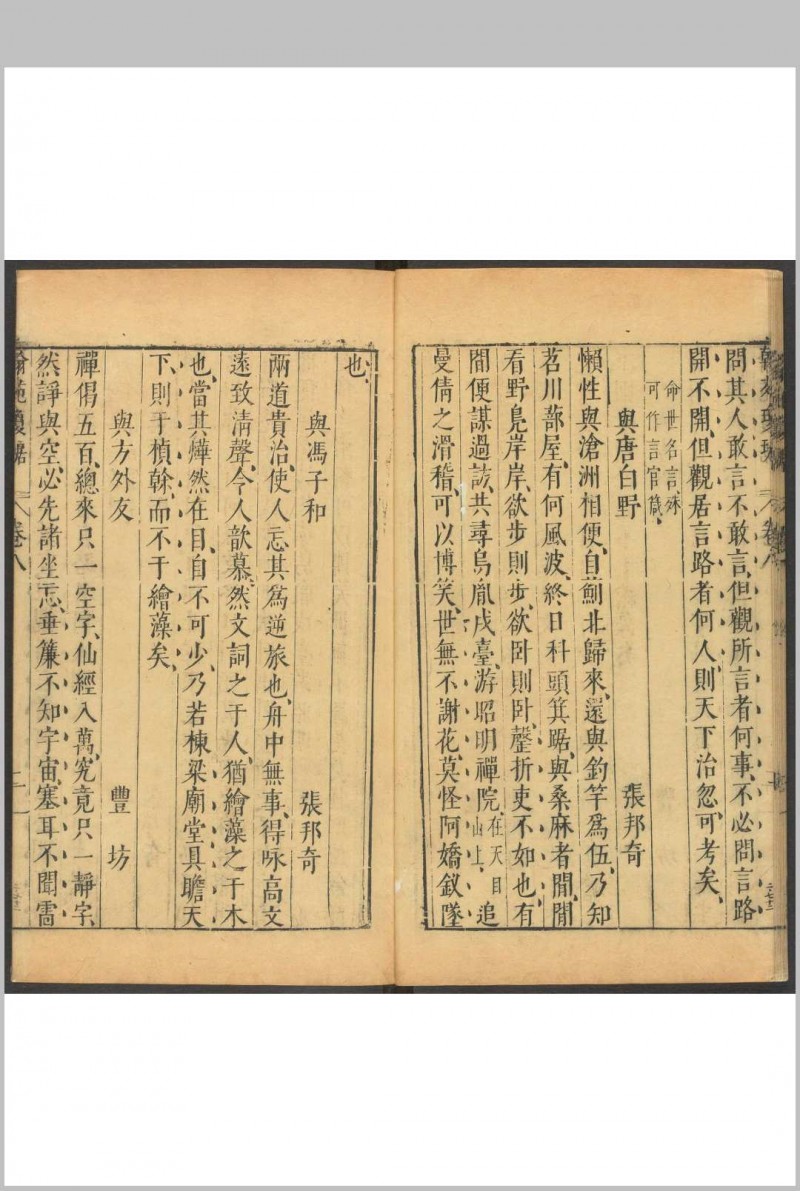 問其人敢言不敢言、但觀所言者何事、不必問言路
開不開、但觀居言路者何人、則天下治忽可考矣、
命世名言殊
可作言官箴、
與唐白野 張邦奇
懶性與滄洲相便、自薊北歸來、還與釣竿爲伍、乃知
茗川蔀屋、有何風波、終日科頭箕踞、與桑麻者閒、閒
看野鳧岸岸、欲步則步、欲卧則卧、罄折吏不如也、有
間便謀過訪、共尋烏胤戍臺、游昭明禪院、在天目山上、追
曼倩之滑稽、可以博笑、世無不謝花、莫怪阿嬌釵墜
也、
與馮子和 張邦奇
兩道貴治、使人忘其爲逆旅也、舟中無事、得咏高文
遠致清聲、令人歆慕、然文詞之于人、猶繪藻之于木
也、當其燁然在目、自不可少、乃若棟梁廟堂、具瞻天
下、則于楨榦、而不于繪藻矣、
與方外友 豐坊
禪偈五百、總來只一空字、仙經入萬、究竟只一靜字、
然諍與空、必先諸坐忘、垂簾不知宇宙、塞耳不聞雷
卷八